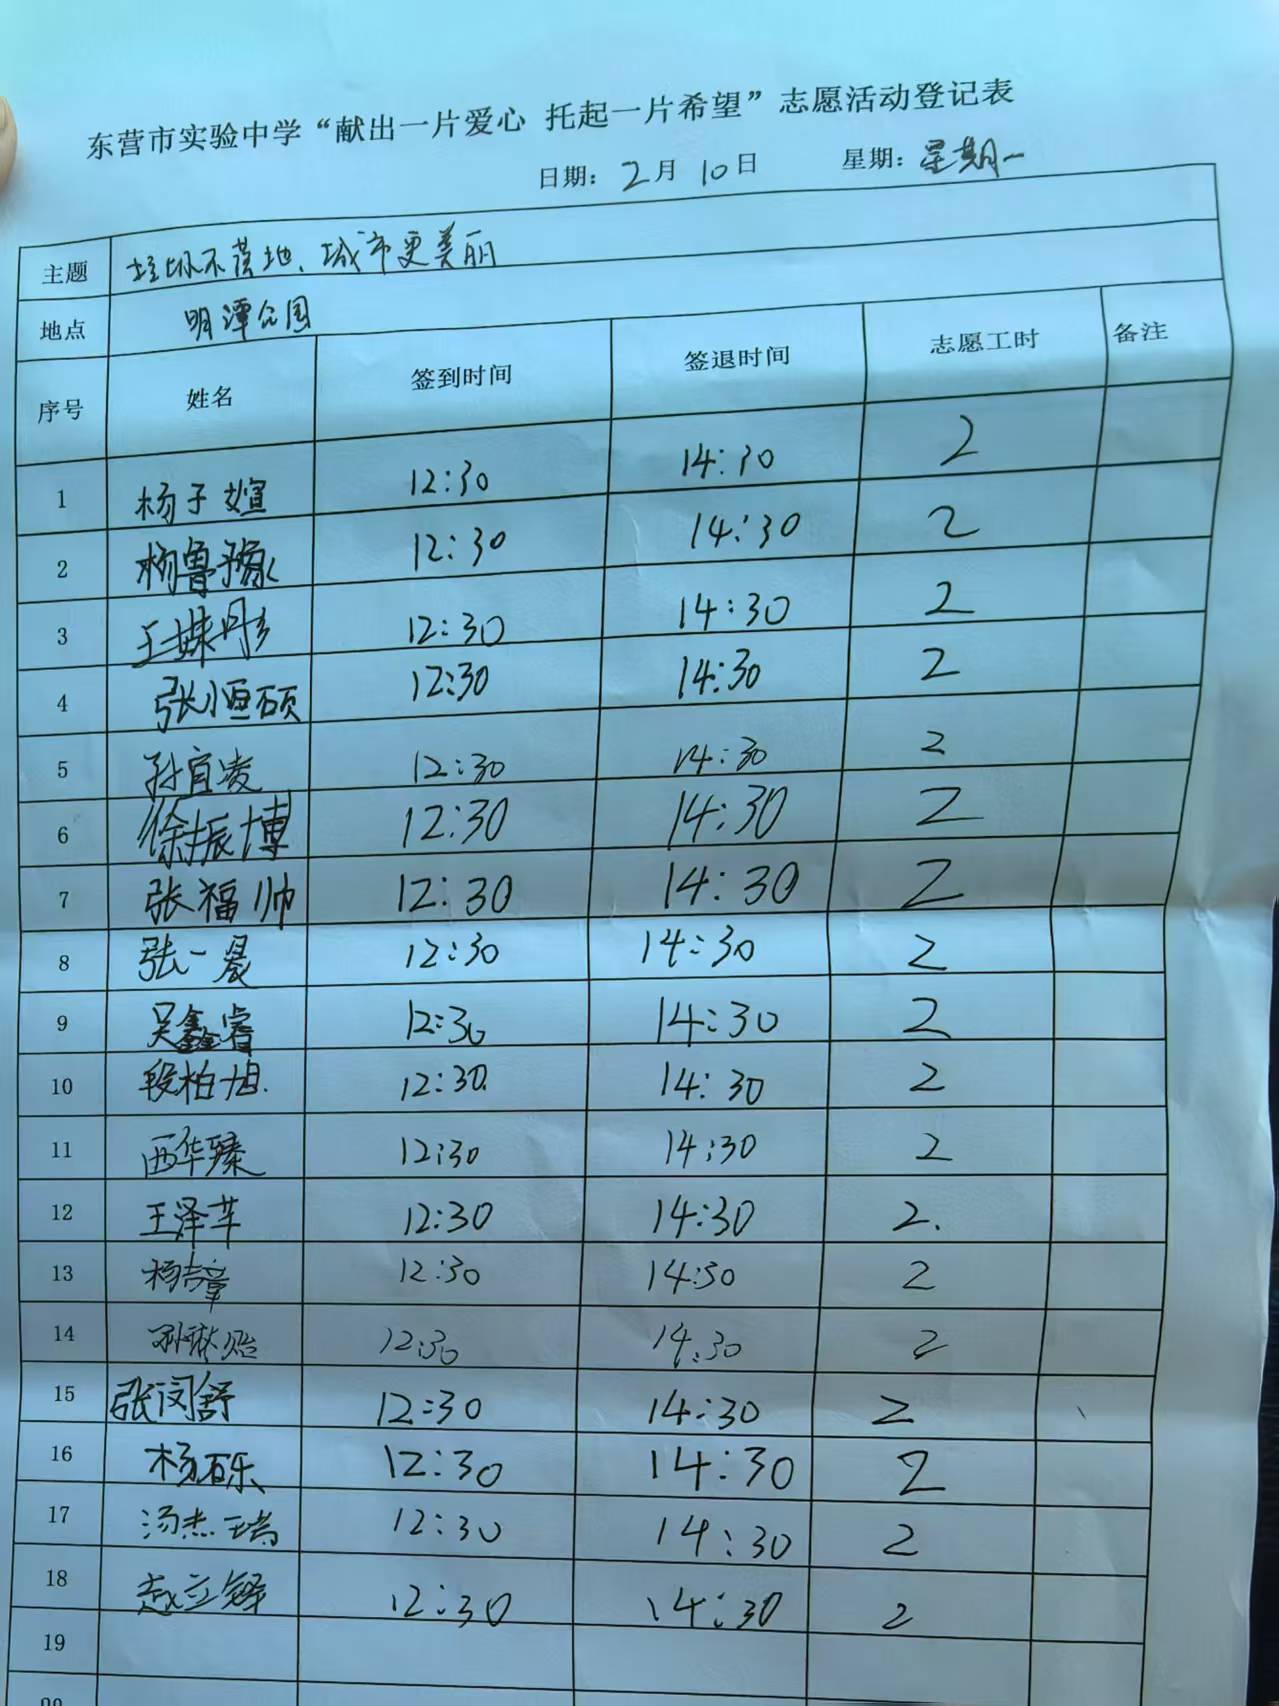 东营市实验中学“献出一片爱心 托起一片希望”志愿活动登记表
日期：2月10日 星期：星期一
主题 垃圾不落地、城市更美丽
地点 明潭公园
序号 姓名 签到时间 签退时间 志愿工时 备注
1 杨子媗 12:30 14:30 2
2 杨鲁豫 12:30 14:30 2
3 王姝彤 12:30 14:30 2
4 张恒硕 12:30 14:30 2
5 孙宜凌 12:30 14:30 2
6 徐振博 12:30 14:30 2
7 张福帅 12:30 14:30 2
8 张一晨 12:30 14:30 2
9 吴鑫睿 12:30 14:30 2
10 段柏旭 12:30 14:30 2
11 西华臻 12:30 14:30 2
12 王泽芊 12:30 14:30 2.
13 12:30 14:30 2
14 12:30 14:30 2
15 张闵舒 12:30 14:30 2
16 杨砾 12:30 14:30 2
17 汤杰瑞 12:30 14:30 2
18 赵立铎 12:30 14:30 2
19